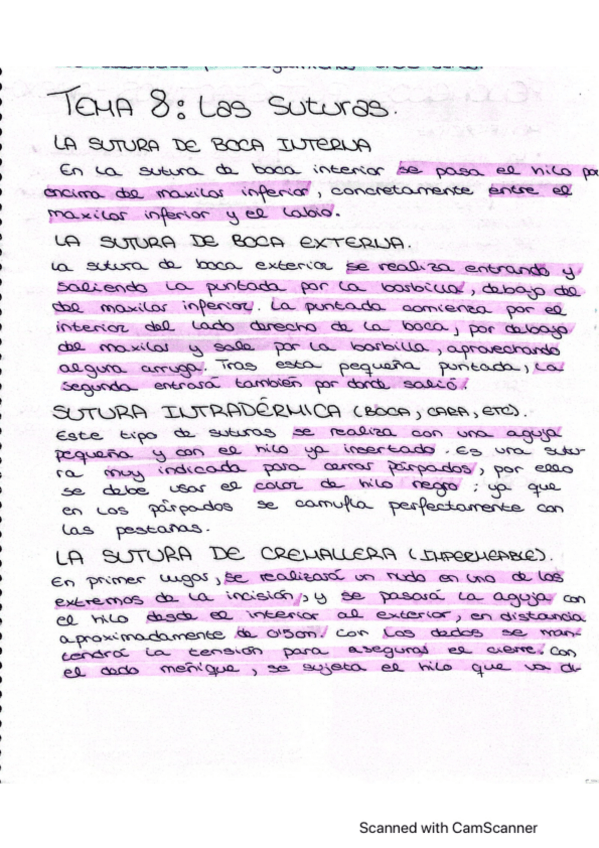 TEMA 8: Las Suturas.
LA SUTURA DE BOCA INTERNA
En la sutura de boca interior se pasa el hilo por
encima del maxilar inferior, concretamente entre el
maxilar inferior y el labio.
LA SUTURA DE BOCA EXTERNA.
La sutura de boca exterior se realiza entrando y
saliendo la puntada por la barbilla, debajo del
del maxilar inferior. La puntada comienza por el
interior del lado derecho de la boca, por debajo
del maxilar y sale por la barbilla, aprovechando
alguna arruga. Tras esta pequeña puntada, la
segunda entrará también por donde salió.
SUTURA INTRADÉRMICA (BOCA, CARA, ETC).
Este tipo de suturas se realiza con una aguja
pequeña y con el hilo ya insertado. Es una sutu-
ra muy indicada para cerrar párpados, por ello
se debe usar el color de hilo negro; ya que
en los párpados se camufla perfectamente con
las pestañas.
LA SUTURA DE CREMALLERA (IMPERMEABLE).
En primer lugar, se realizará un nudo en uno de los
extremos de la incisión, y se pasará la aguja con
el hilo desde el interior al exterior, en distancia
aproximadamente de 0'5cm. Con los dedos se man-
tendrá la tensión para asegurar el cierre. Con
el dedo meñique, se sujeta el hilo que va di-
Scanned with CamScanner